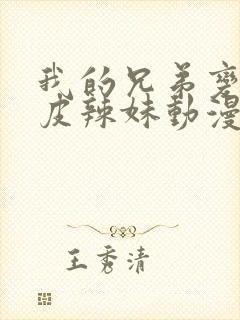 我的兄弟變
皮辣妹動漫
王秀清